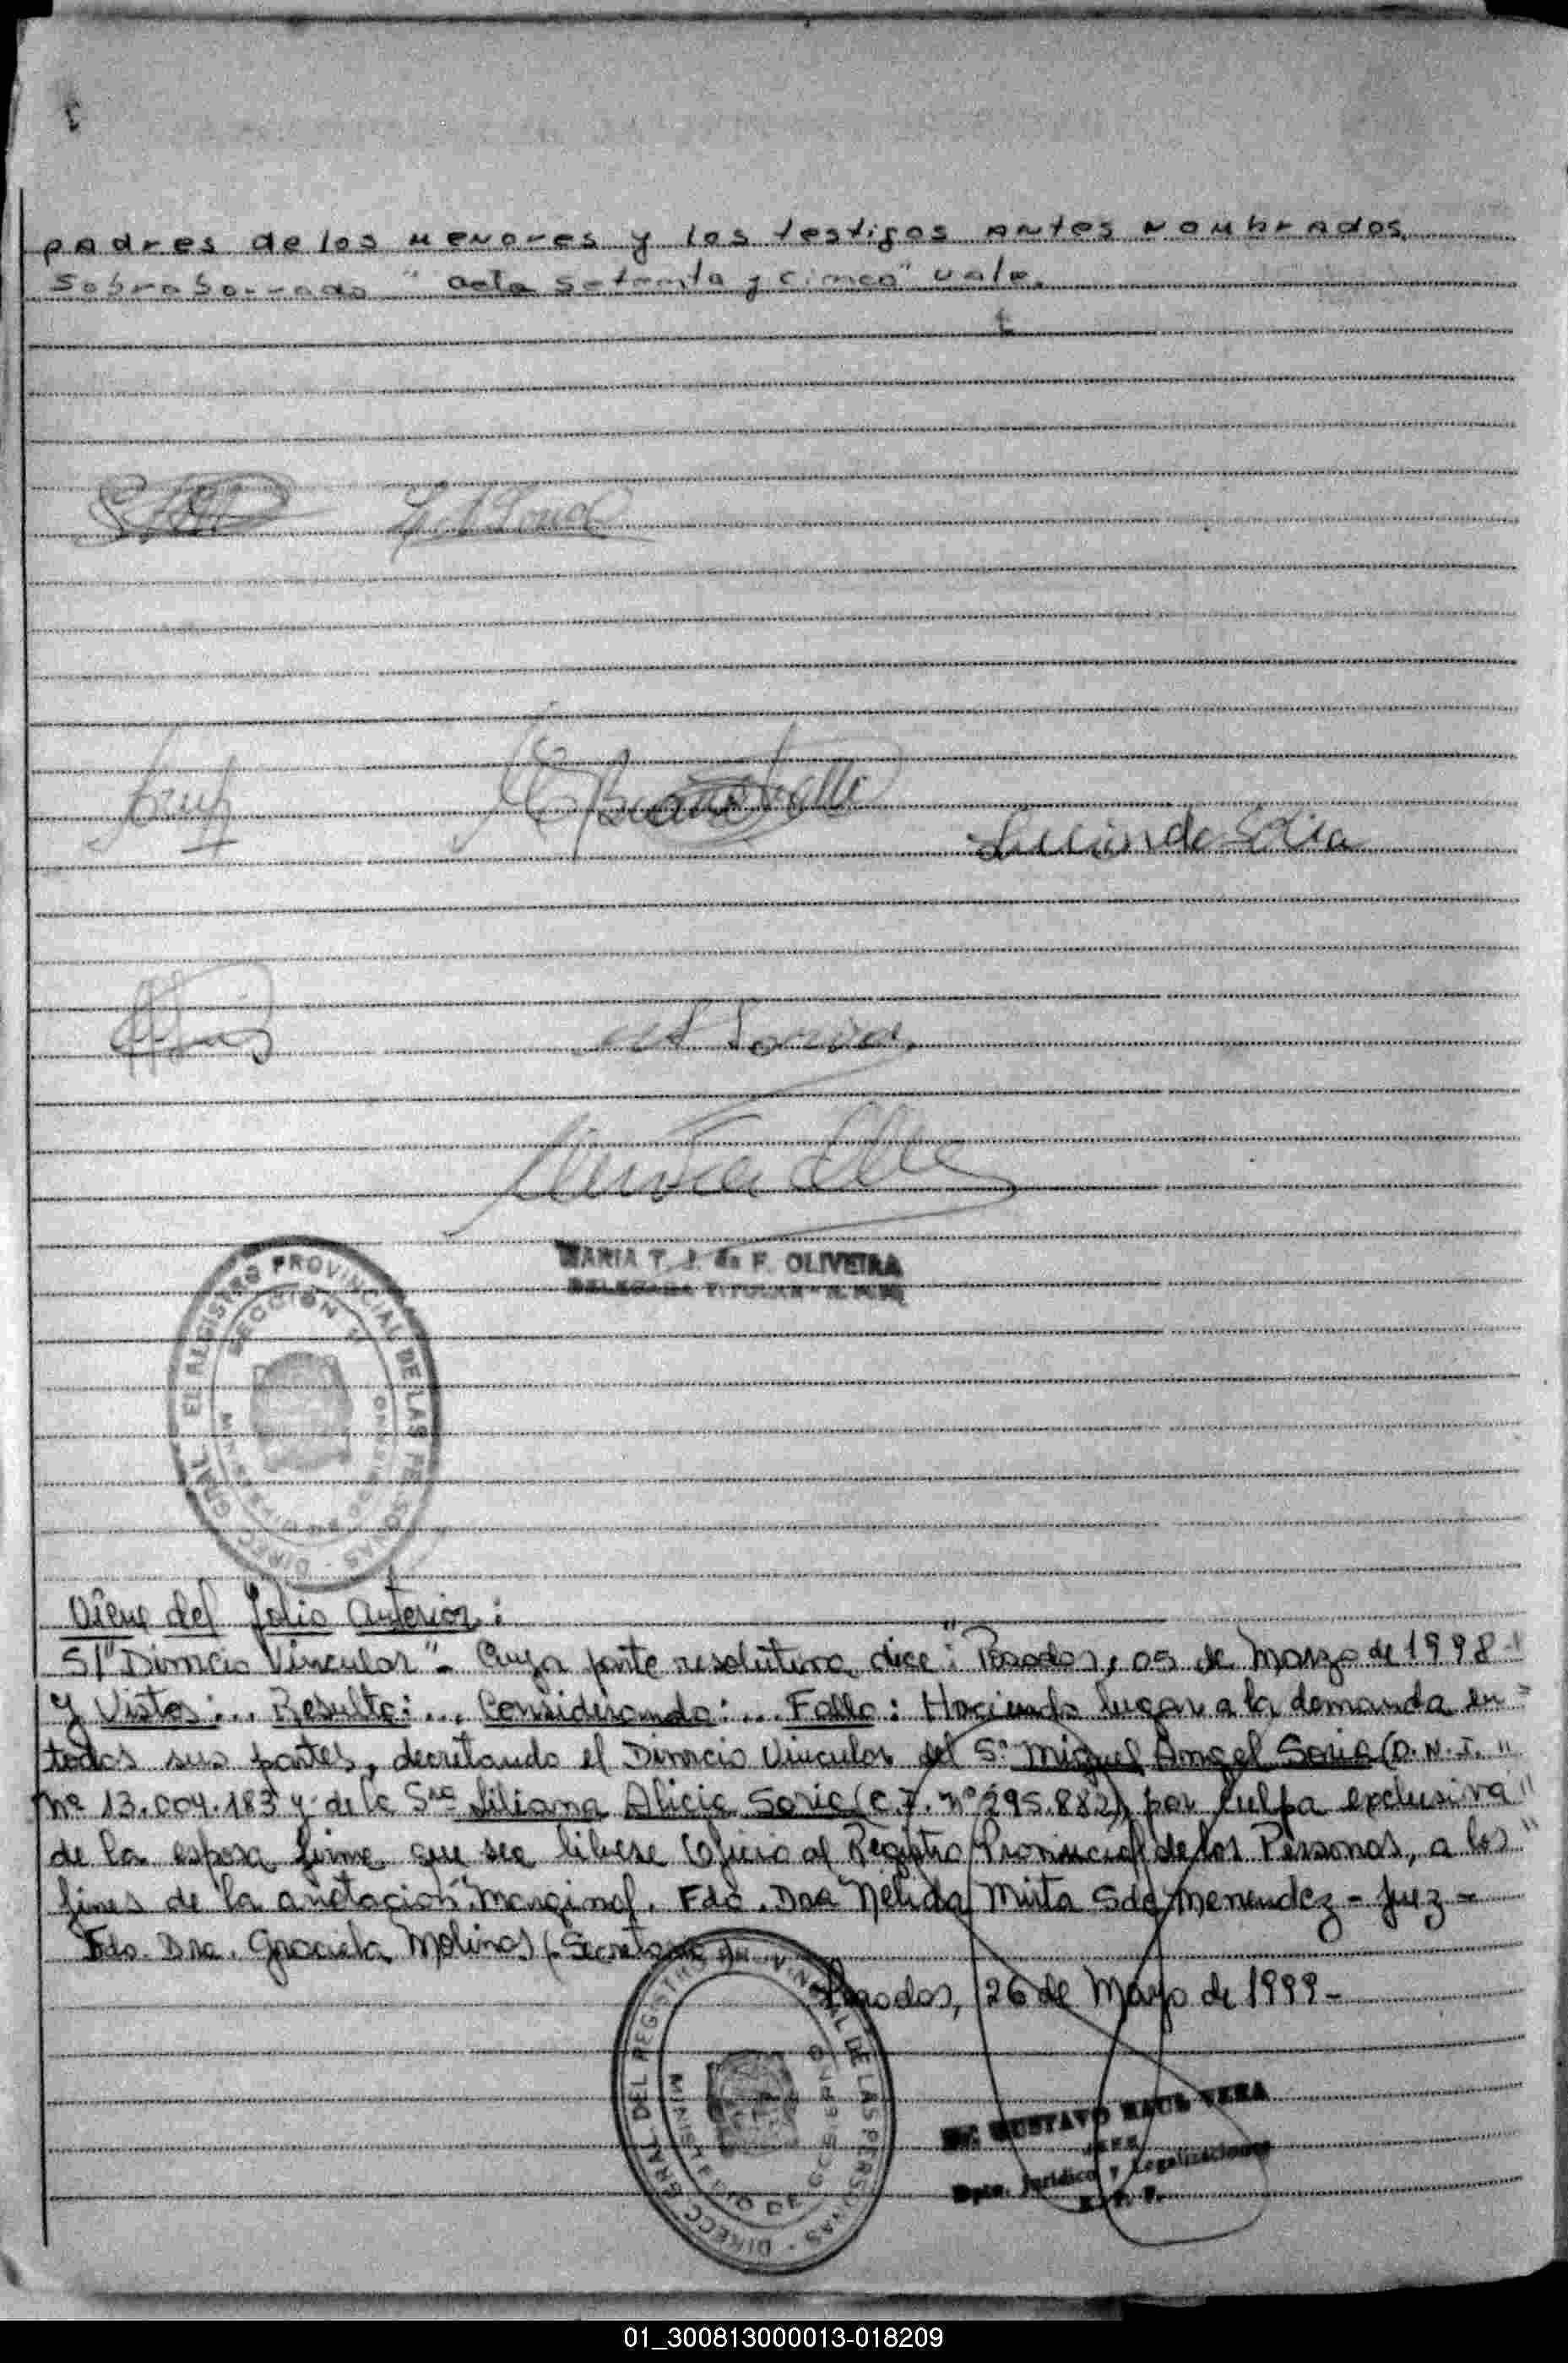 padres de los menores y los testigos antes nombrados.
Sobraborrado "acta setenta y cinco" vale.
Lucinda Soria
MARIA T. J. de F. OLIVEIRA
DELEGADA TITULAR
DIRECC. GRAL. DEL REGISTRO PROVINCIAL DE LAS PERSONAS
SECCION
Viene del folio anterior:
S/"Divorcio Vincular"- Cuya parte resolutiva dice: "Posadas, 05 de Marzo de 1998
y Vistos:... Resulta:... Considerando:... Fallo: Haciendo lugar a la demanda en
todas sus partes, decretando el Divorcio Vincular del Sr. Miguel Angel Soria (D.N.I.
Nº 13.004.183 y de la Sra Liliana Alicia Soria (C.I. Nº 295.882), por culpa exclusiva
de la esposa firme que sea líbrese Oficio al Registro Provincial de las Personas, a los
fines de la anotación Marginal. Fdo. Dra Nélida Mirta Sde Menendez - Juez -
Fdo. Dra. Graciela Molinas (Secretaria)
Posadas, 26 de Mayo de 1999-
DIRECC. GRAL. DEL REGISTRO PROVINCIAL DE LAS PERSONAS
MINISTERIO DE GOBIERNO
Dr. GUSTAVO RAUL VERA
JEFE
Dpto. Jurídico y Legalizaciones
R. P. P.
01_300813000013-018209